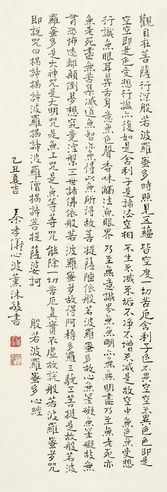 觀自在菩薩行深般若波羅蜜多時照見五蘊皆空度一切苦厄舍利子色不異空空不異色色即是
空空即是色受想行識亦復如是舍利子是諸法空相不生不滅不垢不淨不增不減是故空中無色無受想
行識無眼耳鼻舌身意無色聲香味觸法無眼界乃至無意識界無無明亦無無明盡乃至無老死亦
無老死盡無苦集滅道無智亦無得以無所得故菩提薩埵依般若波羅蜜多故心無罣礙無罣礙故無
有恐怖遠離顛倒夢想究竟涅槃三世諸佛依般若波羅蜜多故得阿耨多羅三藐三菩提故知般若波
羅蜜多是大神咒是大明咒是無上咒是無等等咒能除一切苦真實不虛故說般若波羅蜜多咒
即說咒曰揭諦揭諦波羅揭諦波羅僧揭諦菩提薩婆訶 般若波羅蜜多心經
乙丑 心波熏沐敬書